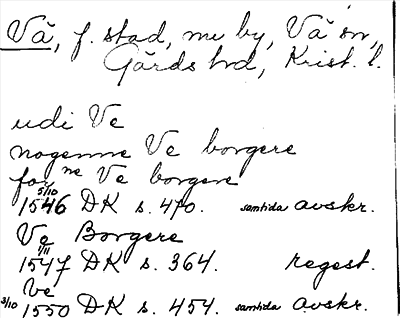 Vä, f. stad, nu by, Vä sn,
Gärds hrd, Krist. l.
udi Ve
nogenne Ve borgere
for ne Ve borgere
5/10
1546 DK s. 470. samtida avskr.
Ve Borgere
1/11
1547 DK s. 364. regest.
Ve
3/10 1550 DK s. 454. samtida avskr.